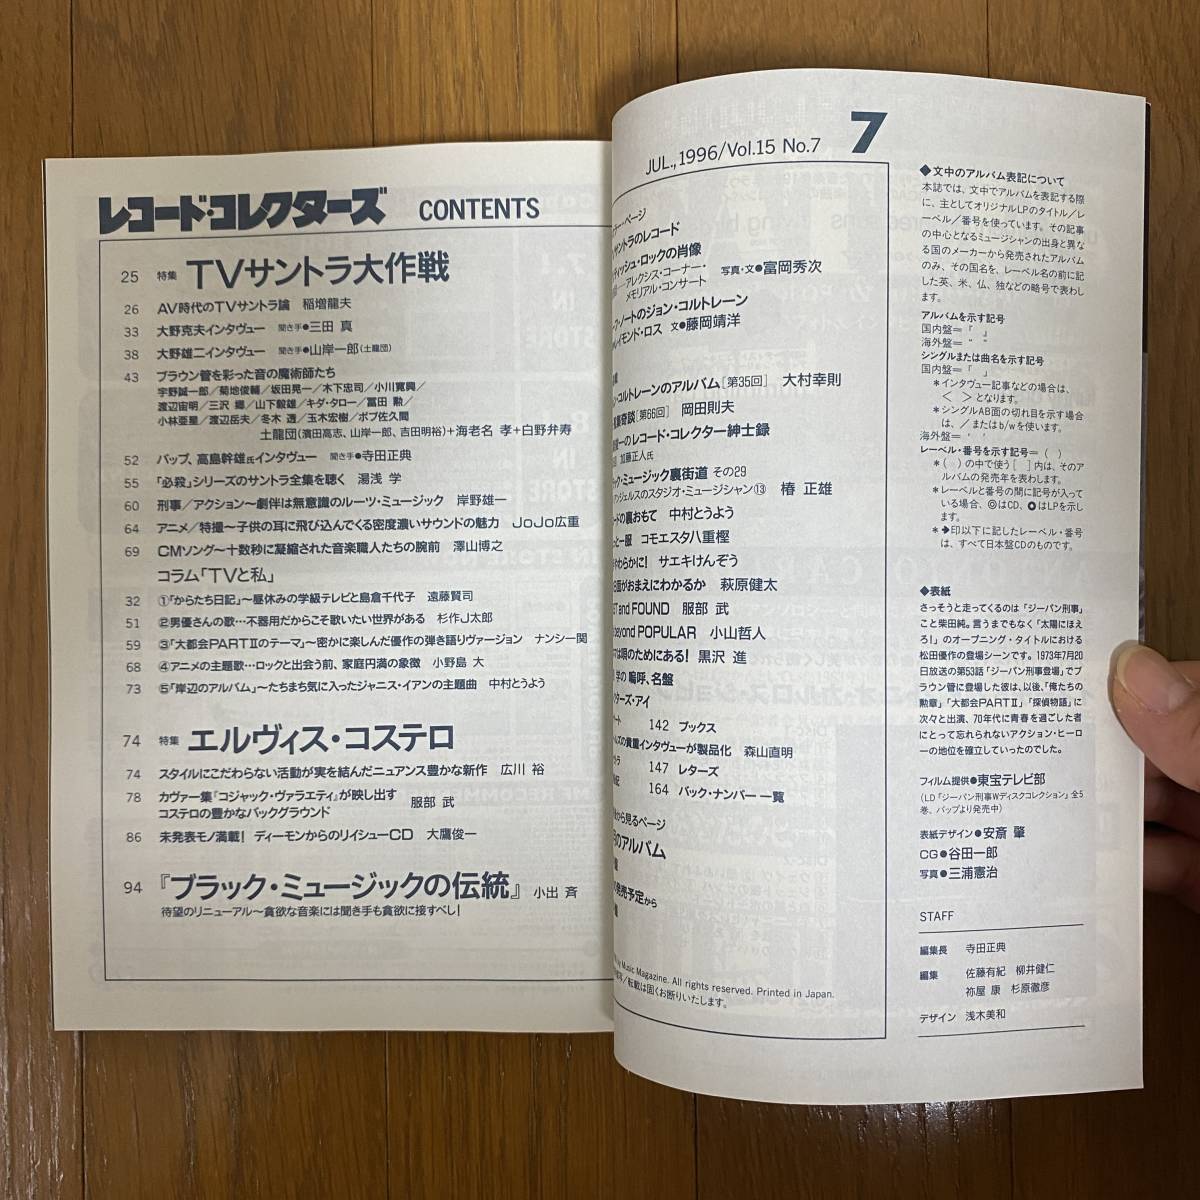 レコード・コレクターズ CONTENTS
25 特集 TVサントラ大作戦
26 AV時代のTVサントラ論 稲増龍夫
33 大野克夫インタヴュー 聞き手●三田 真
38 大野雄二インタヴュー 聞き手●山岸一郎(土龍団)
43 ブラウン管を彩った音の魔術師たち
宇野誠一郎/菊地俊輔/坂田晃一/木下忠司/小川寛興/
渡辺宙明/三沢 郷/山下毅雄/キダ・タロー/冨田 勲/
小林亜星/渡辺岳夫/冬木 透/玉木宏樹/ボブ佐久間
土龍団(濱田高志、山岸一郎、吉田明裕)+海老名 孝+白野弁寿
52 バップ、高島幹雄氏インタヴュー 聞き手●寺田正典
55 「必殺」シリーズのサントラ全集を聴く 湯浅 学
60 刑事/アクション〜劇伴は無意識のルーツ・ミュージック 岸野雄一
64 アニメ/特撮〜子供の耳に飛び込んでくる密度濃いサウンドの魅力 JoJo広重
69 CMソング〜十数秒に凝縮された音楽職人たちの腕前 澤山博之
コラム「TVと私」
32 ①「からたち日記」〜昼休みの学級テレビと島倉千代子 遠藤賢司
51 ②男優さんの歌…不器用だからこそ歌いたい世界がある 杉作J太郎
59 ③「大都会PARTⅡのテーマ」〜密かに楽しんだ優作の弾き語りヴァージョン ナンシー関
68 ④アニメの主題歌…ロックと出会う前、家庭円満の象徴 小野島 大
73 ⑤「岸辺のアルバム」〜たちまち気に入ったジャニス・イアンの主題曲 中村とうよう
74 特集 エルヴィス・コステロ
74 スタイルにこだわらない活動が実を結んだニュアンス豊かな新作 広川 裕
78 カヴァー集『コジャック・ヴァラエティ』が映し出す
コステロの豊かなバックグラウンド 服部 武
86 未発表モノ満載! ディーモンからのリイシューCD 大鷹俊一
94 『ブラック・ミュージックの伝統』 小出 斉
待望のリニューアル〜貪欲な音楽には聞き手も貪欲に接すべし!
JUL.,1996/Vol.15 No.7 7
ラー・ページ
サントラのレコード
ティッシュ・ロックの肖像
アレクシス・コーナー・
メモリアル・コンサート 写真・文●富岡秀次
ーノートのジョン・コルトレーン
レイモンド・ロス 文●藤岡靖洋
ン・コルトレーンのアルバム[第35回] 大村幸則
集奇談[第66回] 岡田則夫
一のレコード・コレクター紳士録
加藤正人氏
ック・ミュージック裏街道 その29
アンジェルスのスタジオ・ミュージシャン⑬ 椿 正雄
ードの裏おもて 中村とうよう
っと一服 コモエスタ八重樫
やわらかに! サエキけんぞう
面がおまえにわかるか 萩原健太
ST and FOUND 服部 武
beyond POPULAR 小山哲人
マは唄のためにある! 黒沢 進
学の 嗚呼、名盤
クターズ・アイ
ート 142 ブックス
ルズの貴重インタヴューが製品化 森山直明
147 レターズ
164 バック・ナンバー一覧
から見るページ
のアルバム
の発売予定から
by Music Magazine. All rights reserved. Printed in Japan.
写/転載は固くお断りいたします。
◆文中のアルバム表記について
本誌では、文中でアルバムを表記する際
に、主としてオリジナルLPのタイトル/レ
ーベル/番号を使っています。その記事
の中心となるミュージシャンの出身と異な
る国のメーカーから発売されたアルバム
のみ、その国名を、レーベル名の前に記
した英、米、仏、独などの略号で表わし
ます。
アルバムを示す記号
国内盤=『 』
海外盤=" "
シングルまたは曲名を示す記号
国内盤=「 」
＊インタヴュー記事などの場合は、
< >となります。
＊シングルAB面の切れ目を示す場合
は、/またはb/wを使います。
海外盤=' '
レーベル・番号を示す記号=( )
＊( )の中で使う[ ]内は、そのア
ルバムの発売年を表わします。
＊レーベルと番号の間に記号が入って
いる場合、◎はCD、✪はLPを示し
ます。
＊➔印以下に記したレーベル・番号
は、すべて日本盤CDのものです。
◆表紙
さっそうと走ってくるのは「ジーパン刑事」
こと柴田純。言うまでもなく「太陽にほえ
ろ!」のオープニング・タイトルにおける
松田優作の登場シーンです。1973年7月20
日放送の第53話「ジーパン刑事登場」でブ
ラウン管に登場した彼は、以後、「俺たちの
勲章」「大都会PARTⅡ」「探偵物語」に
次々と出演、70年代に青春を過ごした者
にとって忘れられないアクション・ヒーロ
ーの地位を確立していったのでした。
フィルム提供●東宝テレビ部
(LD「ジーパン刑事Wディスクコレクション」全5
巻、バップより発売中)
表紙デザイン●安斎 肇
CG●谷田一郎
写真●三浦憲治
STAFF
編集長 寺田正典
編集 佐藤有紀 柳井健仁
祢屋 康 杉原徹彦
デザイン 浅木美和